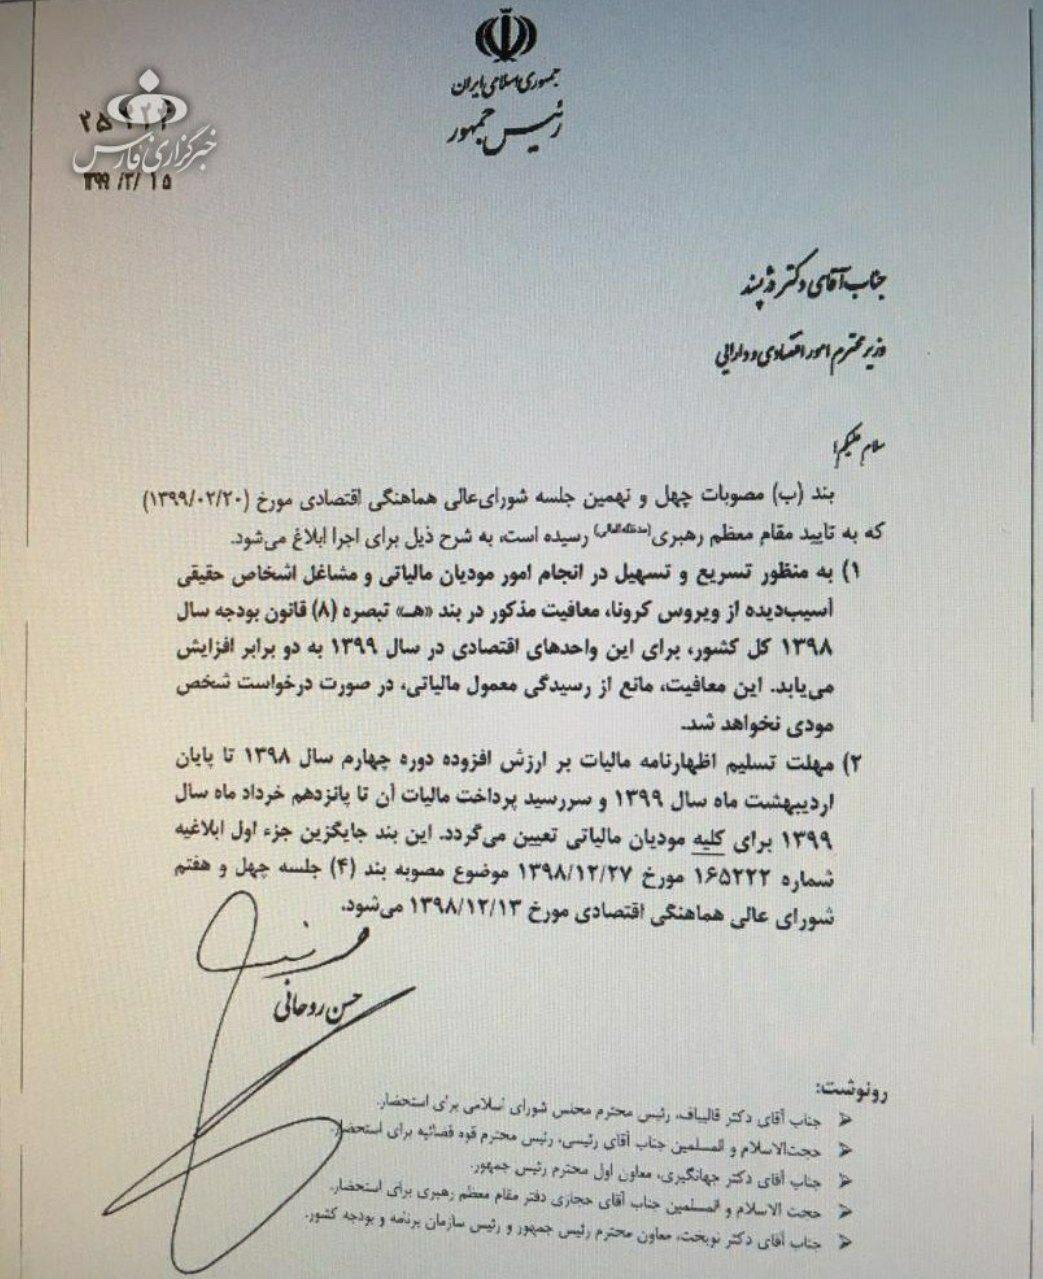 جمهوری اسلامی ایران
رئیس جمهور
خبرگزاری فارس
۱۳۹۹/۳/۱۵
جناب آقای دکتر دژپسند
وزیر محترم امور اقتصادی و دارایی
سلام علیکم؛
بند (ب) مصوبات چهل و نهمین جلسه شورای‌عالی هماهنگی اقتصادی مورخ (۱۳۹۹/۰۲/۲۰)
که به تایید مقام معظم رهبری(مدظله‌العالی) رسیده است، به شرح ذیل برای اجرا ابلاغ می‌شود.
۱) به منظور تسریع و تسهیل در انجام امور مودیان مالیاتی و مشاغل اشخاص حقیقی
آسیب‌دیده از ویروس کرونا، معافیت مذکور در بند «هـ» تبصره (۸) قانون بودجه سال
۱۳۹۸ کل کشور، برای این واحدهای اقتصادی در سال ۱۳۹۹ به دو برابر افزایش
می‌یابد. این معافیت، مانع از رسیدگی معمول مالیاتی، در صورت درخواست شخص
مودی نخواهد شد.
۲) مهلت تسلیم اظهارنامه مالیات بر ارزش افزوده دوره چهارم سال ۱۳۹۸ تا پایان
اردیبهشت ماه سال ۱۳۹۹ و سررسید پرداخت مالیات آن تا پانزدهم خرداد ماه سال
۱۳۹۹ برای کلیه مودیان مالیاتی تعیین می‌گردد. این بند جایگزین جزء اول ابلاغیه
شماره ۱۶۵۲۲۲ مورخ ۱۳۹۸/۱۲/۲۷ موضوع مصوبه بند (۴) جلسه چهل و هفتم
شورای عالی هماهنگی اقتصادی مورخ ۱۳۹۸/۱۲/۱۳ می‌شود.
حسن روحانی
رونوشت:
➢ جناب آقای دکتر قالیباف، رئیس محترم مجلس شورای اسلامی برای استحضار.
➢ حجت‌الاسلام و المسلمین جناب آقای رئیسی، رئیس محترم قوه قضائیه برای استحضار.
➢ جناب آقای دکتر جهانگیری، معاون اول محترم رئیس جمهور.
➢ حجت الاسلام و المسلمین جناب آقای حجازی دفتر مقام معظم رهبری برای استحضار.
➢ جناب آقای دکتر نوبخت، معاون محترم رئیس جمهور و رئیس سازمان برنامه و بودجه کشور.